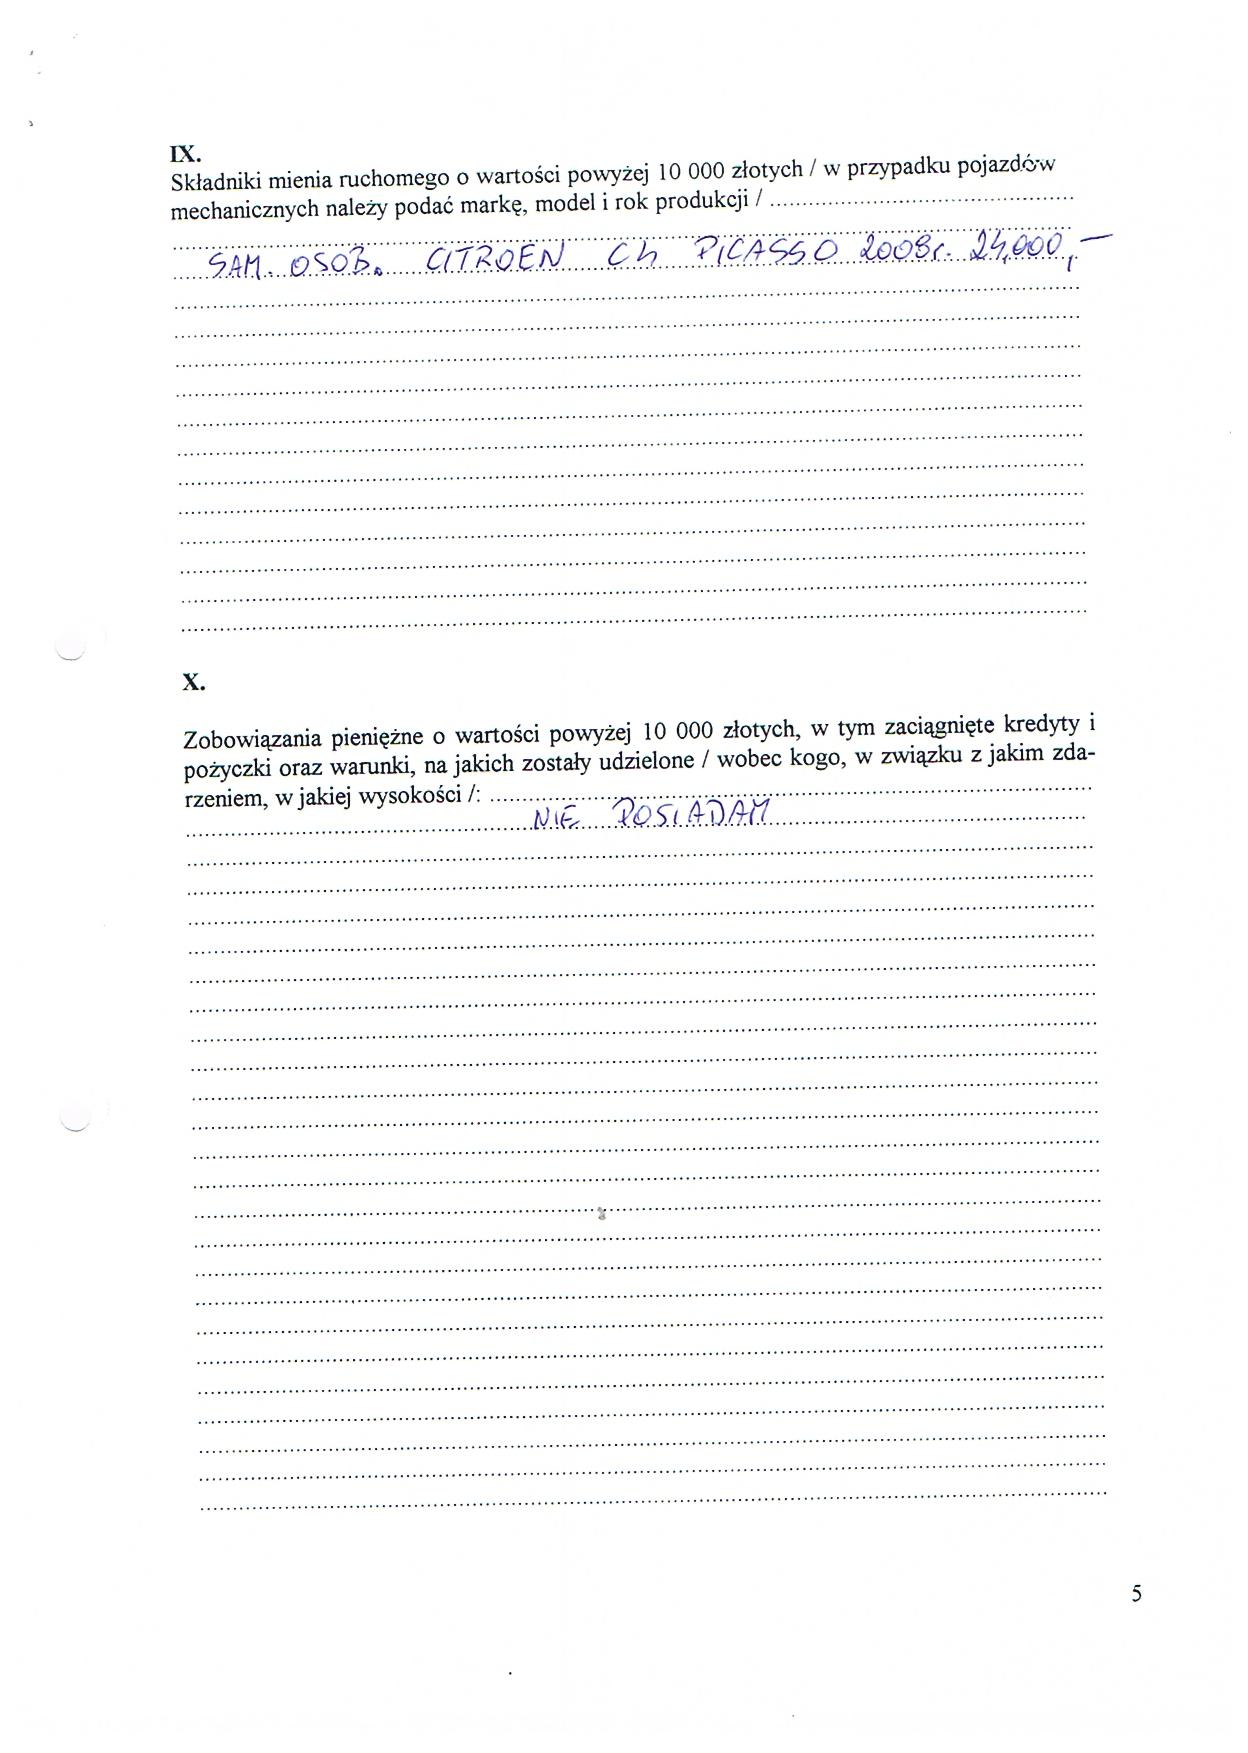 IX.
Składniki mienia ruchomego o wartości powyżej 10 000 złotych / w przypadku pojazdów
mechanicznych należy podać markę, model i rok produkcji /
SAM. OSOB. CITROEN C4 PICASSO 2008r. 24,000,-
X.
Zobowiązania pieniężne o wartości powyżej 10 000 złotych, w tym zaciągnięte kredyty i
pożyczki oraz warunki, na jakich zostały udzielone / wobec kogo, w związku z jakim zda-
rzeniem, w jakiej wysokości /:
NIE POSIADAM
5